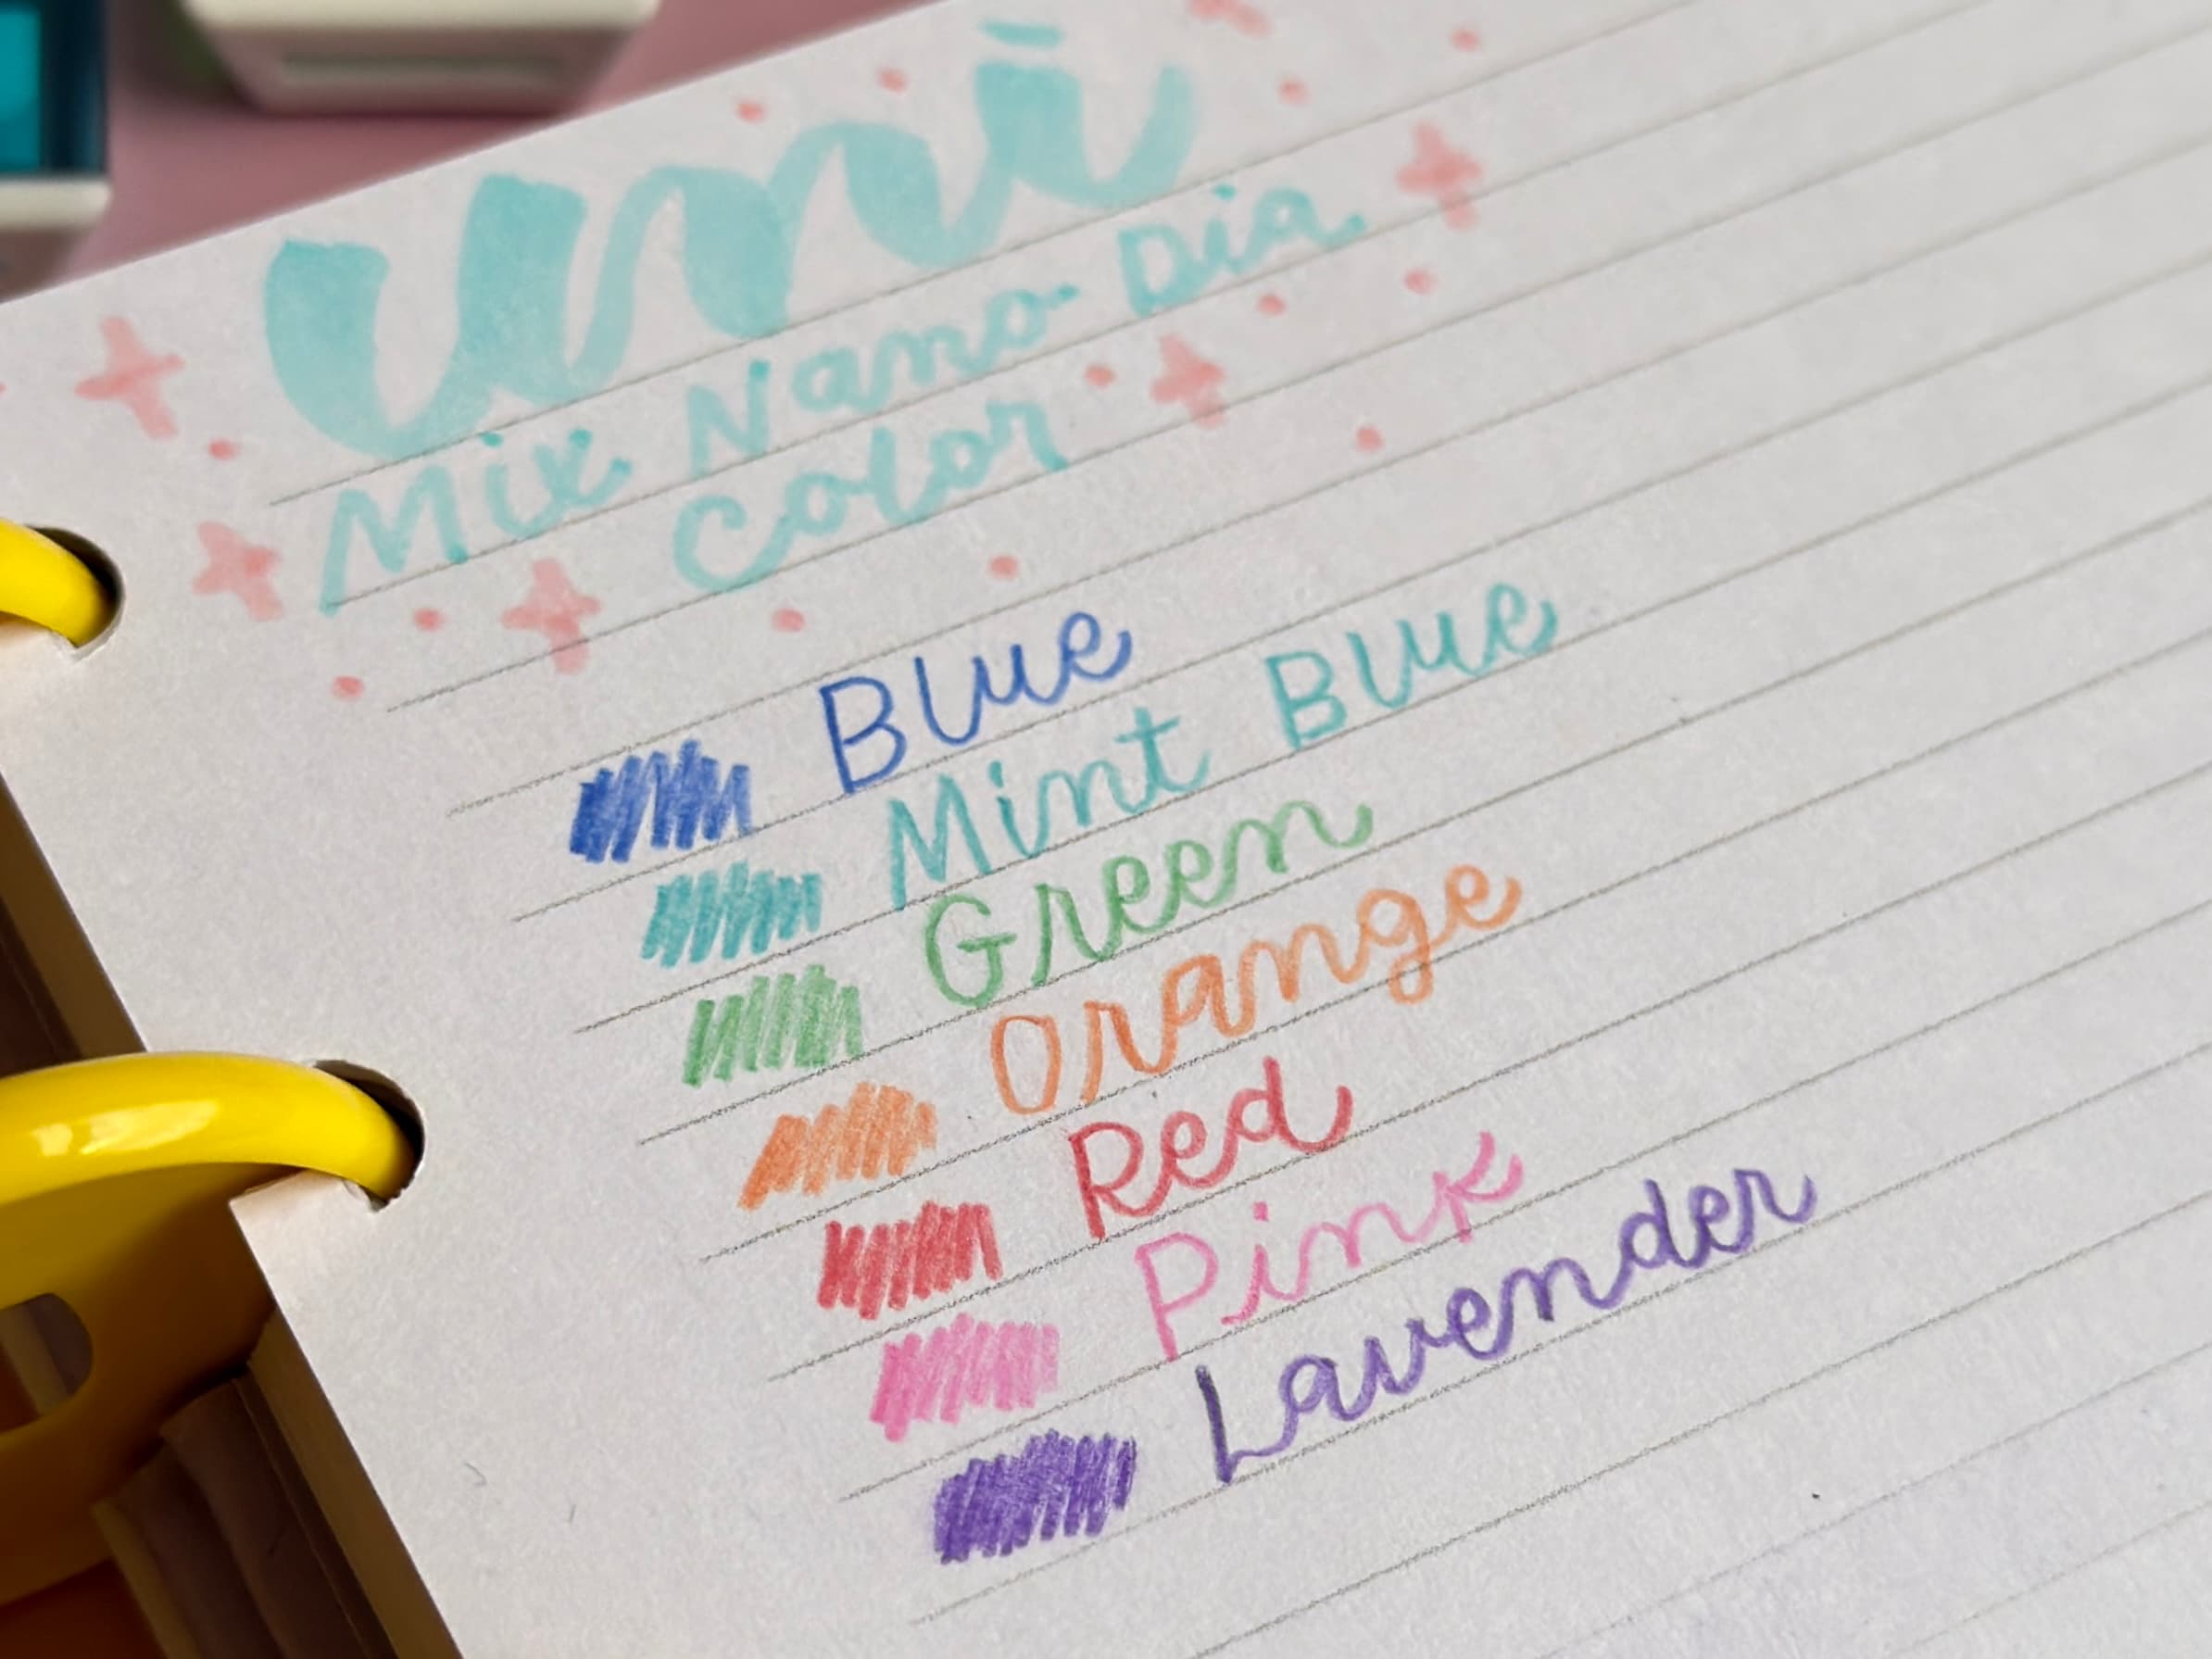 uni
Mix Nano Dia
Color
Blue
Mint Blue
Green
Orange
Red
Pink
Lavender